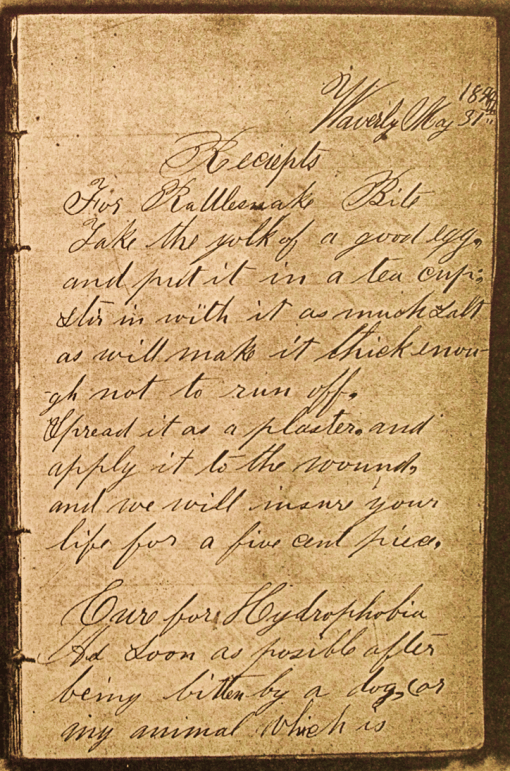 Waverly May 31st
Reciepts
For Rattlesnake Bite
Take the yolk of a good egg.
and put it in a tea cup.
Stir in with it as much Salt
as will make it thick enou-
-gh not to run off.
Spread it as a plaster. and
apply it to the wound,
and we will insure your
life for a five cent piece.
Cure for Hydrophobia
As soon as posible after
being bitten by a dog, (or
my animal which is